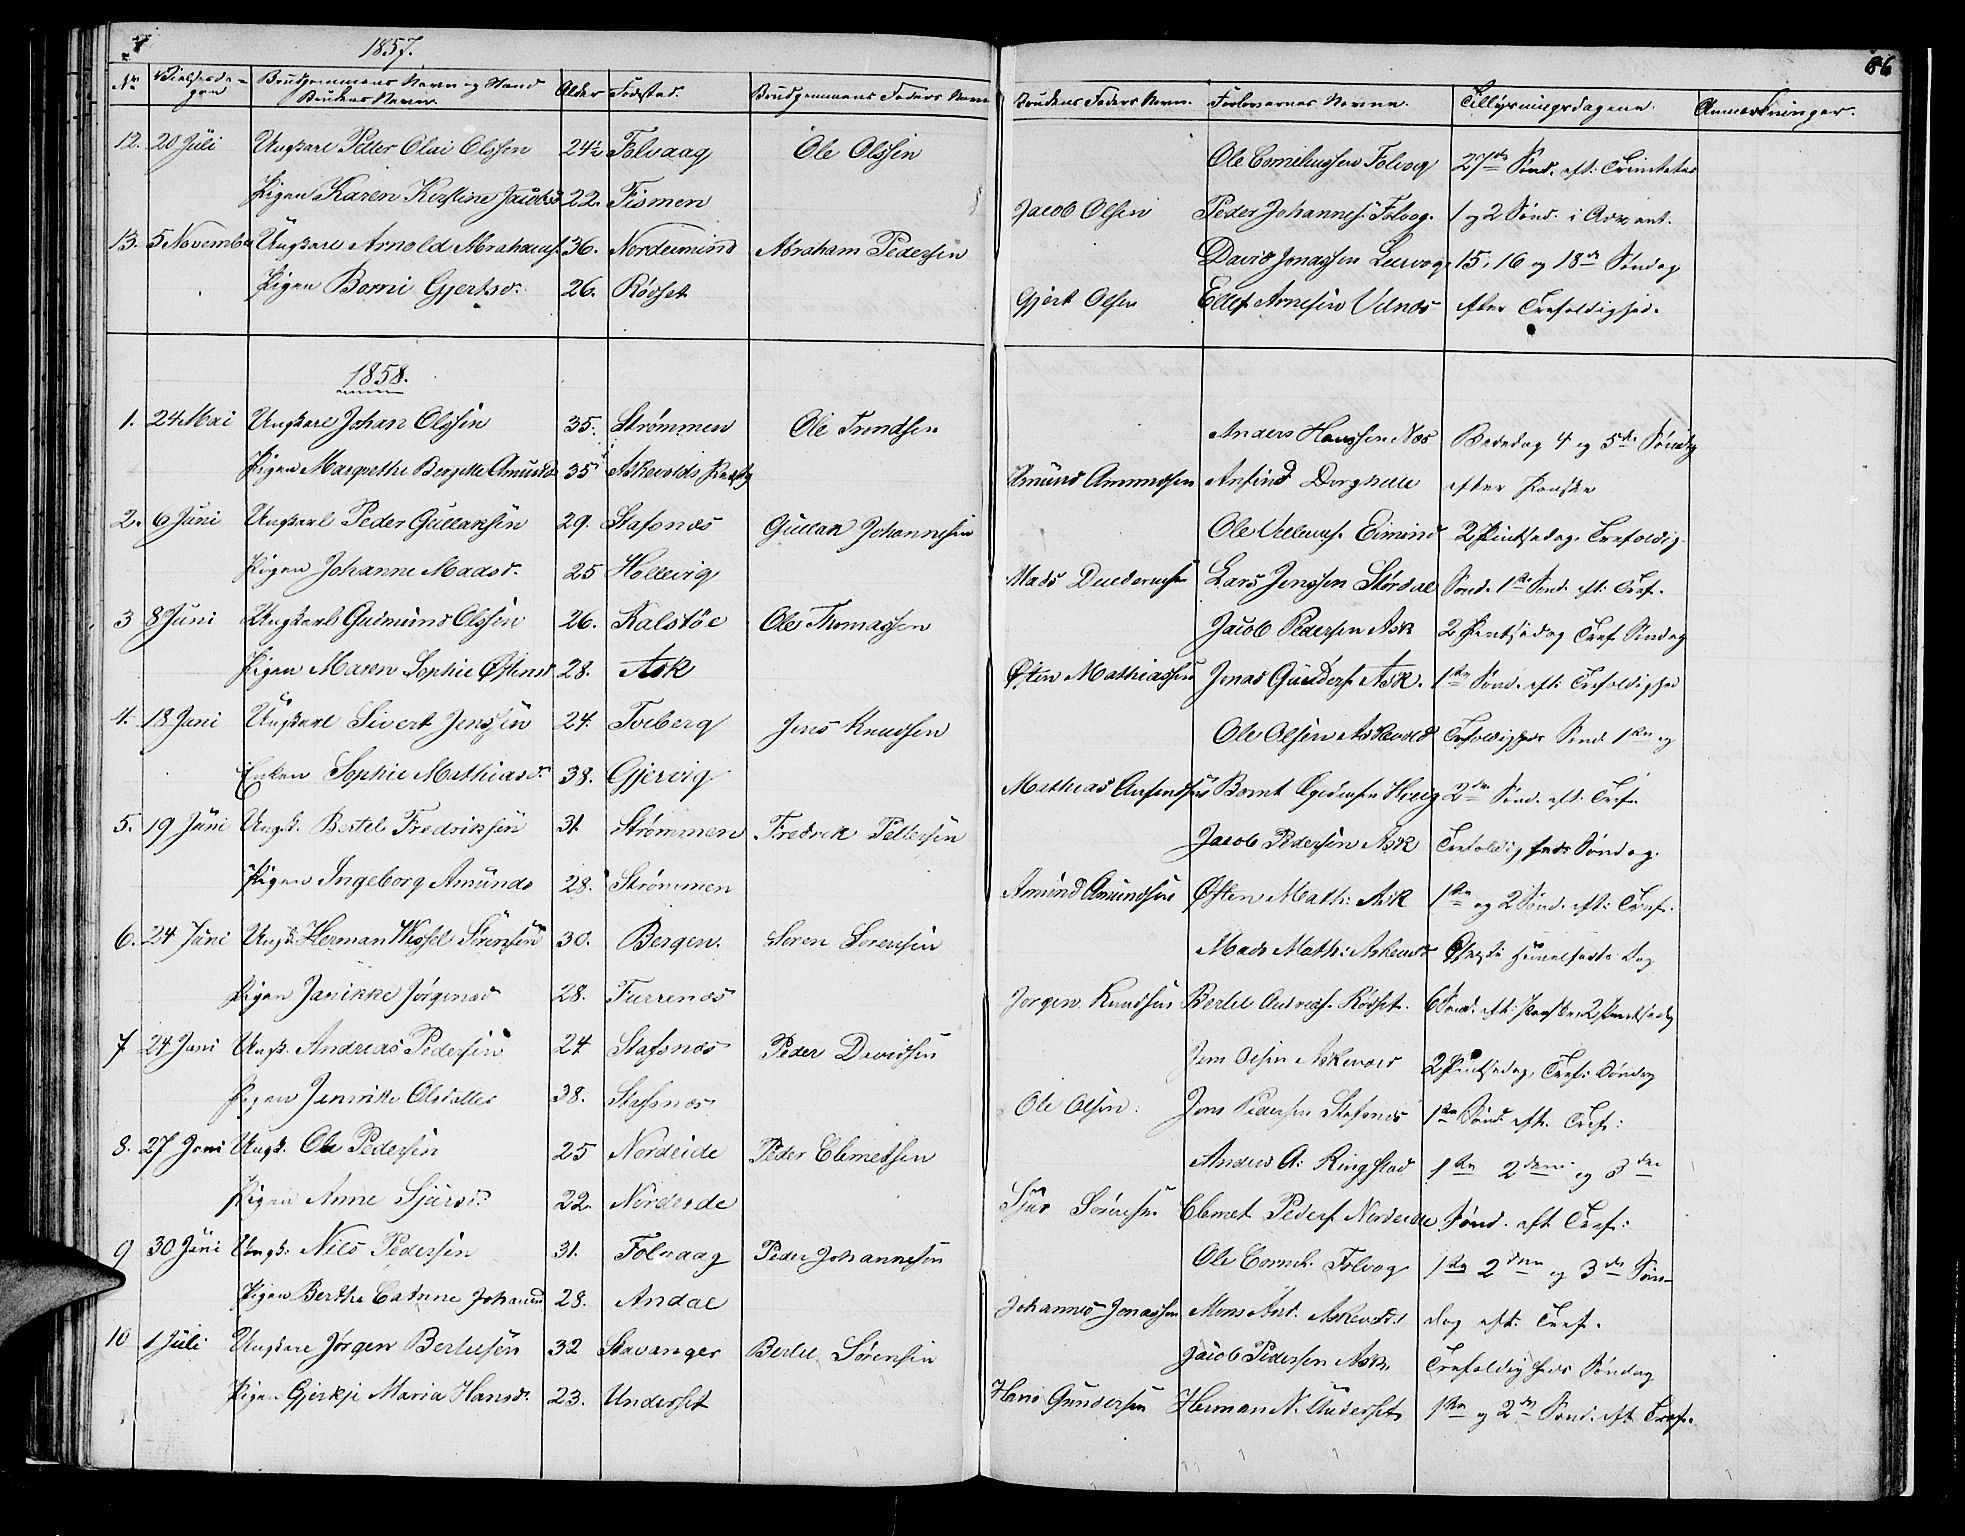 1857.
66
No Vielsesdagen Brudgommens Navn og Stand Brudens Navn. Alder Fødested. Brudgommens Faders Navn Brudens Faders Navn. Forlovernes Navne. Tillysningsdagene. Anmærkninger.
12. 20 Juli Ungkarl Petter Olai Olssen 24½ Folvaag Ole Olssen Ole Corneliussen Folvog 27de Sønd. eft: Trinitates
Pigen Karen Kirstine Jacobsd 22. Fismen Jacob Olsen Peder Johannes. Folvog. 1 og 2 Sønd. i Advent.
13. 5 November Ungkarl Arnold Abrahams. 36. Nordeimund Abraham Pedersen David Jonassen 15, 16 og 18de Søndag
Pigen Borni Gjertsd. 26. Rødset Gjert Olsen Ellef Arnesen Vilnæs efter Trefoldighed.
1858.
1. 24 Mai Ungkarl Johan Olssen 35. Strømmen Ole Trondsen Anders Hanssen Næs Bededag 4 og 5te Søndag
Pigen Margrethe Bergitte Amundsd 35 Askevolds Præstg Amund Amundsen Anfind efter Paaske
2. 6 Juni Ungkarl Peder Gullaksen 29. Stafsnæs Gullak Johannesen Ole Villums. Eimind 2 Pintsedag. Trefoldig.
Pigen Johanne Madsd. 25 Hollevig Mads Lars Jenssen Stordal Sønd. 1ste Sønd. eft: Tref.
3 8 Juni Ungkarl Gudmund Olssen 26. Kalstøe Ole Thomassen Jacob Pedersen Ask 2 Pintsedag Tref. Søndag
Pigen Maren Sophie Østensd 28. Ask Østen Mathiassen Jonas Gunders. Ask. 1ste Sønd. eft: Trefoldighed
4. 18 Juni Ungkarl Sivert Jenssen 24. Tveberg Jens Knudsen Ole Olsen Askevold Trefoldigheds Sønd 1ste og
Enken Sophie Mathiasd. 38. Gjervig Mathias Bernt 2den Sønd. eft. Tref.
5. 19 Juni Ungk. Bertel Fredriksen 31. Strømmen Fredrek Pettersen Jacob Pedersen Ask Trefoldigheds Søndag.
Pigen Ingeborg Amunds 28. Strømmen Amund Amundsen Østen Math: Ask 1ste og 2 Sønd. eft: Tref.
6. 24 Juni Ungk. Herman Wessel Sørensen 30. Bergen. Soren Sorensen Mads Math: Askevold Christi Himmelfarts Dag
Pigen Janikke Jørgensd 28. Furrenæs Jørgen Knudsen Bertel Andreas. Rødset. 6 Sønd. eft: Paaske, 2 Pintsedag
7 24 Juni Ungk. Andreas Pedersen 24 Stafsnæs Peder Davidsen Jens Olsen Askevold 2 Pintsedag, Tref: Søndag
Pigen Olsdatter 38. Stafsnæs Ole Olsen. Jens Pedersen Stafsnæs 1ste Sønd. eft. Tref:
8. 27 Juni Ungk. Ole Pedersen 25 Nordeide Peder Clemetsen Anders A: Ringstad 1ste 2den og 3die
Pigen Anne Sjursd. 22. Nordeide Sjur Sørensen Clemet Peders. Nordeide Sønd. eft Tref:
9 30 Juni Ungk. Nils Pedersen 31. Folvaag Peder Johannesen Ole Cornel. Folvog 1ste 2den og 3die Søn-
Pigen Berthe Catrine Johannsd 28. Andal Johannes Jonassen Mons And. Askevold. dag eft. Tref.
10 1 Juli Ungkarl Jørgen Bertelsen 32 Stavanger Bertel Sørensen Jacob Pedersen Ask. Trefoldigheds Søndag
Pigen Gjerkje Maria Hansd. 23. Underset Hans Gundersen Herman N. Underset 1ste og 2den Sønd. eft Tref.